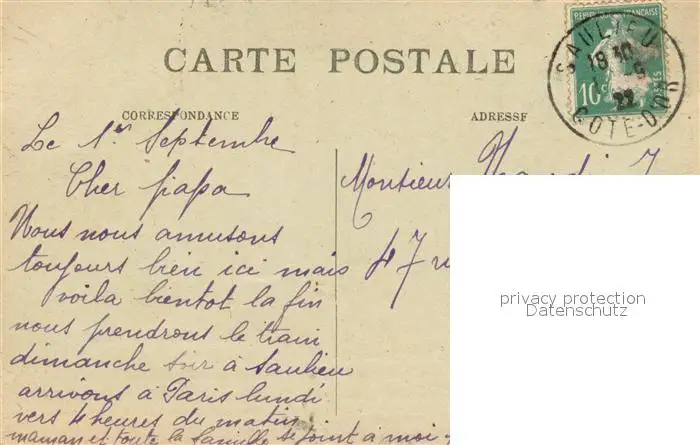 CARTE POSTALE
REPUBLIQUE FRANÇAISE
10c
POSTES
SAULIEU
18 10
22
COTE-D'OR
CORRESPONDANCE
ADRESSE
Le 1er Septembre
Cher papa
Nous nous amusons
toujours bien ici mais
voila bientot la fin
nous prendrons le train
dimanche soir à Saulieu
arrivons à Paris lundi
vers 4 heures du matin
maman et toute la famille se joint à moi
Monsieur
47
privacy protection
Datenschutz